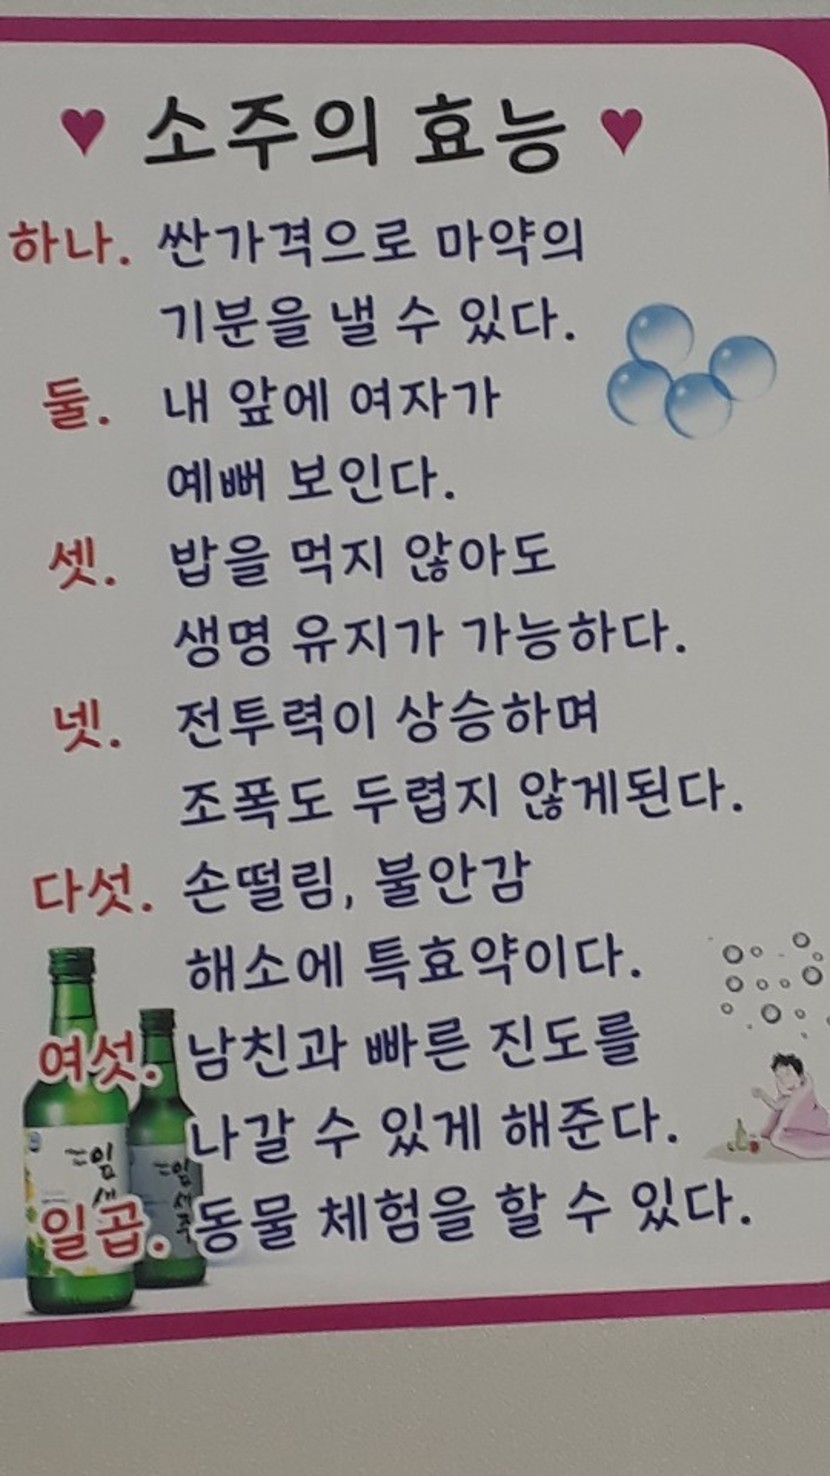 ♥ 소주의 효능 ♥
하나. 싼가격으로 마약의
기분을 낼 수 있다.
둘. 내 앞에 여자가
예뻐 보인다.
셋. 밥을 먹지 않아도
생명 유지가 가능하다.
넷. 전투력이 상승하며
조폭도 두렵지 않게된다.
다섯. 손떨림, 불안감
해소에 특효약이다.
여섯. 남친과 빠른 진도를
나갈 수 있게 해준다.
일곱. 동물 체험을 할 수 있다.